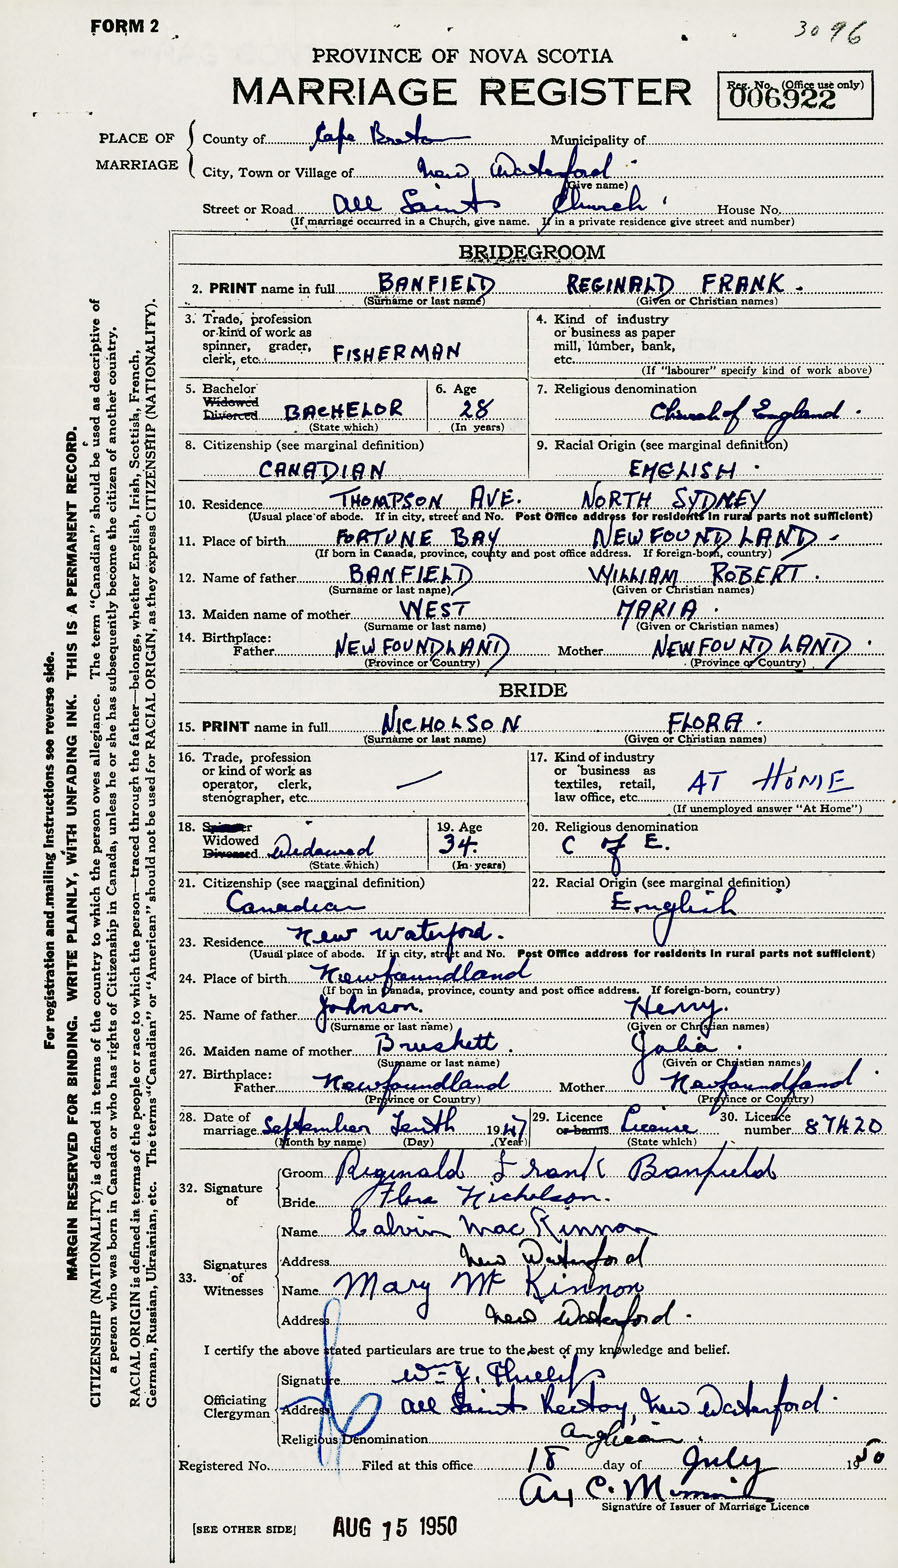 FORM 2
3096
PROVINCE OF NOVA SCOTIA
MARRIAGE REGISTER
Reg. No. (Office use only)
006922
PLACE OF MARRIAGE
County of Cape Breton Municipality of
City, Town or Village of New Waterford
(Give name)
Street or Road All Saints Church House No.
(If marriage occurred in a Church, give name. If in a private residence give street and number)
BRIDEGROOM
2. PRINT name in full BANFIELD REGINALD FRANK.
(Surname or last name) (Given or Christian names)
3. Trade, profession or kind of work as spinner, grader, clerk, etc. FISHERMAN
4. Kind of industry or business as paper mill, lumber, bank, etc.
(If "labourer" specify kind of work above)
5. Bachelor Widowed Divorced BACHELOR
(State which)
6. Age 28
(In years)
7. Religious denomination
Church of England.
8. Citizenship (see marginal definition)
CANADIAN
9. Racial Origin (see marginal definition)
ENGLISH.
10. Residence THOMPSON AVE. NORTH SYDNEY
(Usual place of abode. If in city, street and No. Post Office address for residents in rural parts not sufficient)
11. Place of birth FORTUNE BAY NEWFOUNDLAND.
(If born in Canada, province, county and post office address. If foreign-born, country)
12. Name of father BANFIELD WILLIAM ROBERT.
(Surname or last name) (Given or Christian names)
13. Maiden name of mother WEST MARIA.
(Surname or last name) (Given or Christian names)
14. Birthplace:
Father NEWFOUNDLAND Mother NEWFOUNDLAND.
(Province or Country) (Province or Country)
BRIDE
15. PRINT name in full NICHOLSON FLORA.
(Surname or last name) (Given or Christian names)
16. Trade, profession or kind of work as operator, clerk, stenographer, etc. —
17. Kind of industry or business as textiles, retail, law office, etc. AT HOME
(If unemployed answer "At Home")
18. Spinster Widowed Divorced Widowed
(State which)
19. Age 34.
(In years)
20. Religious denomination
C of E.
21. Citizenship (see marginal definition)
Canadian
22. Racial Origin (see marginal definition)
English
23. Residence New Waterford.
(Usual place of abode. If in city, street and No. Post Office address for residents in rural parts not sufficient)
24. Place of birth Newfoundland
(If born in Canada, province, county and post office address. If foreign-born, country)
25. Name of father Johnson. Henry.
(Surname or last name) (Given or Christian names)
26. Maiden name of mother Julia.
(Surname or last name) (Given or Christian names)
27. Birthplace:
Father Newfoundland Mother Newfoundland.
(Province or Country) (Province or Country)
28. Date of marriage September Tenth 1947
(Month by name) (Day) (Year)
29. Licence or banns License
(State which)
30. Licence number 87420
32. Signature of
Groom Reginald Frank Banfield
Bride Flora Nicholson.
33. Signatures of Witnesses
Name Calvin MacKinnon
Address New Waterford
Name Mary McKinnon
Address New Waterford.
I certify the above stated particulars are true to the best of my knowledge and belief.
Officiating Clergyman
Signature Wm J. Phillips
Address All Saints Rectory, New Waterford.
Religious Denomination Anglican.
Registered No. Filed at this office 18 day of July 1950
Signature of Issuer of Marriage Licence
[SEE OTHER SIDE]
AUG 15 1950
For registration and mailing instructions see reverse side.
MARGIN RESERVED FOR BINDING. WRITE PLAINLY, WITH UNFADING INK. THIS IS A PERMANENT RECORD.
CITIZENSHIP (NATIONALITY) is defined in terms of the country to which the person owes allegiance. The term "Canadian" should be used as descriptive of
a person who was born in Canada or who has rights of Citizenship in Canada, unless he or she has subsequently become the citizen of another country.
RACIAL ORIGIN is defined in terms of the people or race to which the person—traced through the father—belongs, whether English, Irish, Scottish, French,
German, Russian, Ukrainian, etc. The terms "Canadian" or "American" should not be used for RACIAL ORIGIN, as they express CITIZENSHIP (NATIONALITY).